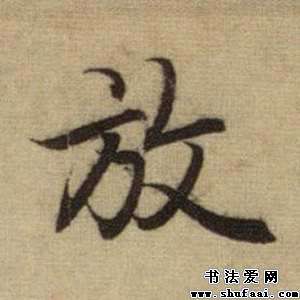 放
书法爱网
www.shufaai.com